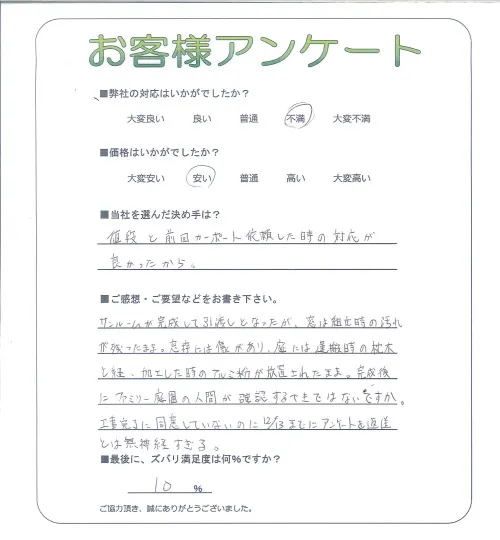 お客様アンケート
■弊社の対応はいかがでしたか？
大変良い 良い 普通 不満 大変不満
■価格はいかがでしたか？
大変安い 安い 普通 高い 大変高い
■当社を選んだ決め手は？
値段と前回カーポート依頼した時の対応が
良かったから。
■ご感想・ご要望などをお書き下さい。
サンルームが完成して引渡しとなったが、窓は組立時の汚れ
が残ったまま。窓枠には傷があり、庭には運搬時の枕木
と紐・加工した時のアルミ粉が放置されたまま。完成後
にファミリー庭園の人間が確認するべきではないですか。
工事完了に同意していないのに12/13までにアンケートを返送
とは無神経すぎる。
■最後に、ズバリ満足度は何%ですか？
10 %
ご協力頂き、誠にありがとうございました。